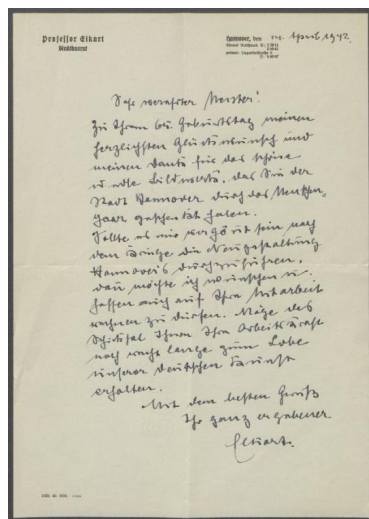 Professor Elkart
Stadtbaurat
Hannover, den 14. April 1942.
Sehr verehrter Meister!
Zu Ihrem 60. Geburtstag meinen
herzlichsten Glückwunsch und
meinen Dank für das schöne
u. edle Bildwerk, das Sie der
Stadt Hannover durch das Menschen-
paar geschenkt haben.
Sollte es mir vergönnt sein nach
dem Kriege die Neugestaltung
Hannovers durchzuführen,
dann möchte ich wünschen u.
hoffen auch auf Ihre Mitarbeit
rechnen zu dürfen. Möge das
Schicksal Ihnen Ihre Arbeitskraft
noch recht lange zum Lobe
unserer deutschen Kunst
erhalten.
Mit dem besten Gruß
Ihr ganz ergebener
Elkart.